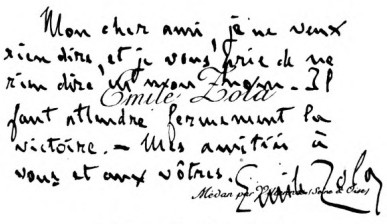 Mon cher ami, je ne veux
rien dire, et je vous prie de ne
rien dire en mon nom. Il
Emile Zola
faut attendre fermement la
victoire. — Mes amitiés à
vous et aux vôtres.
Emile Zola
Médan par